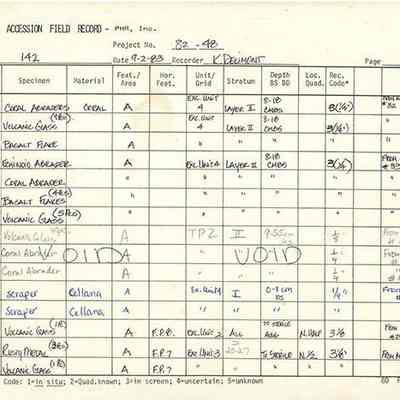 ACCESSION FIELD RECORD - PHRI, Inc.
Project No. 82-48
142 Date 9-2-83 Recorder K. DELIMONT Page
Specimen Material Feat./Area Hor. Feat. Unit/Grid Stratum Depth BS BD Loc. Quad. Rec. Code*
CORAL ABRADERS CORAL A EXC. UNIT 4 LAYER II 8-18 CMBS 3(1/4")
VOLCANIC GLASS A EXC. UNIT 4 LAYER II 8-18 CMBS 3(1/8"
BASALT FLAKE A " " " " "
ECHINOID ABRADER A EXC. UNIT 4 LAYER II 8-18 CMBS 3(1/4" FROM
CORAL ABRADER " " " " "
BASALT FLAKES " " " " "
VOLCANIC GLASS " " " " "
Volcanic Glass A TP 2 II From
Coral Abrader VOID A " " VOID From
Coral Abrader A " "
Scraper Cellana A Exc. Unit 4 I 0-8 cm BS 1/4" From
Scraper Cellana A " " " "
VOLCANIC GLASS A F.P. 8 EXC. UNIT 2 ALL TO STERILE N. HALF 3 1/8 FROM
RUSTY METAL A F.P. 7 EXC. UNIT 3 20-27 TO STERILE N. 1/2 3 1/8 FROM
VOLCANIC GLASS A F.P. 7 " " " " "
Code: 1=in situ; 2=Quad.known; 3=in screen; 4=uncertain; 5=unknown